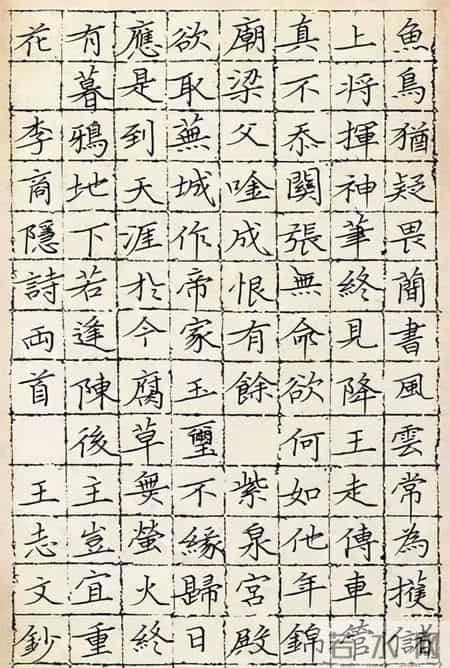 魚鳥猶疑畏蕳書風雲常為擭
上將揮神筆終見降王走傳車管
真不忝關張無命欲何如他年錦
廟梁父唫成恨有餘 紫泉宮殿
欲取蕪城作帝家玉璽不緣歸日
應是到天涯於今腐草無螢火終
有暮鴉地下若逢陳後主豈宜重
花 李商隱詩両首 王志文鈔